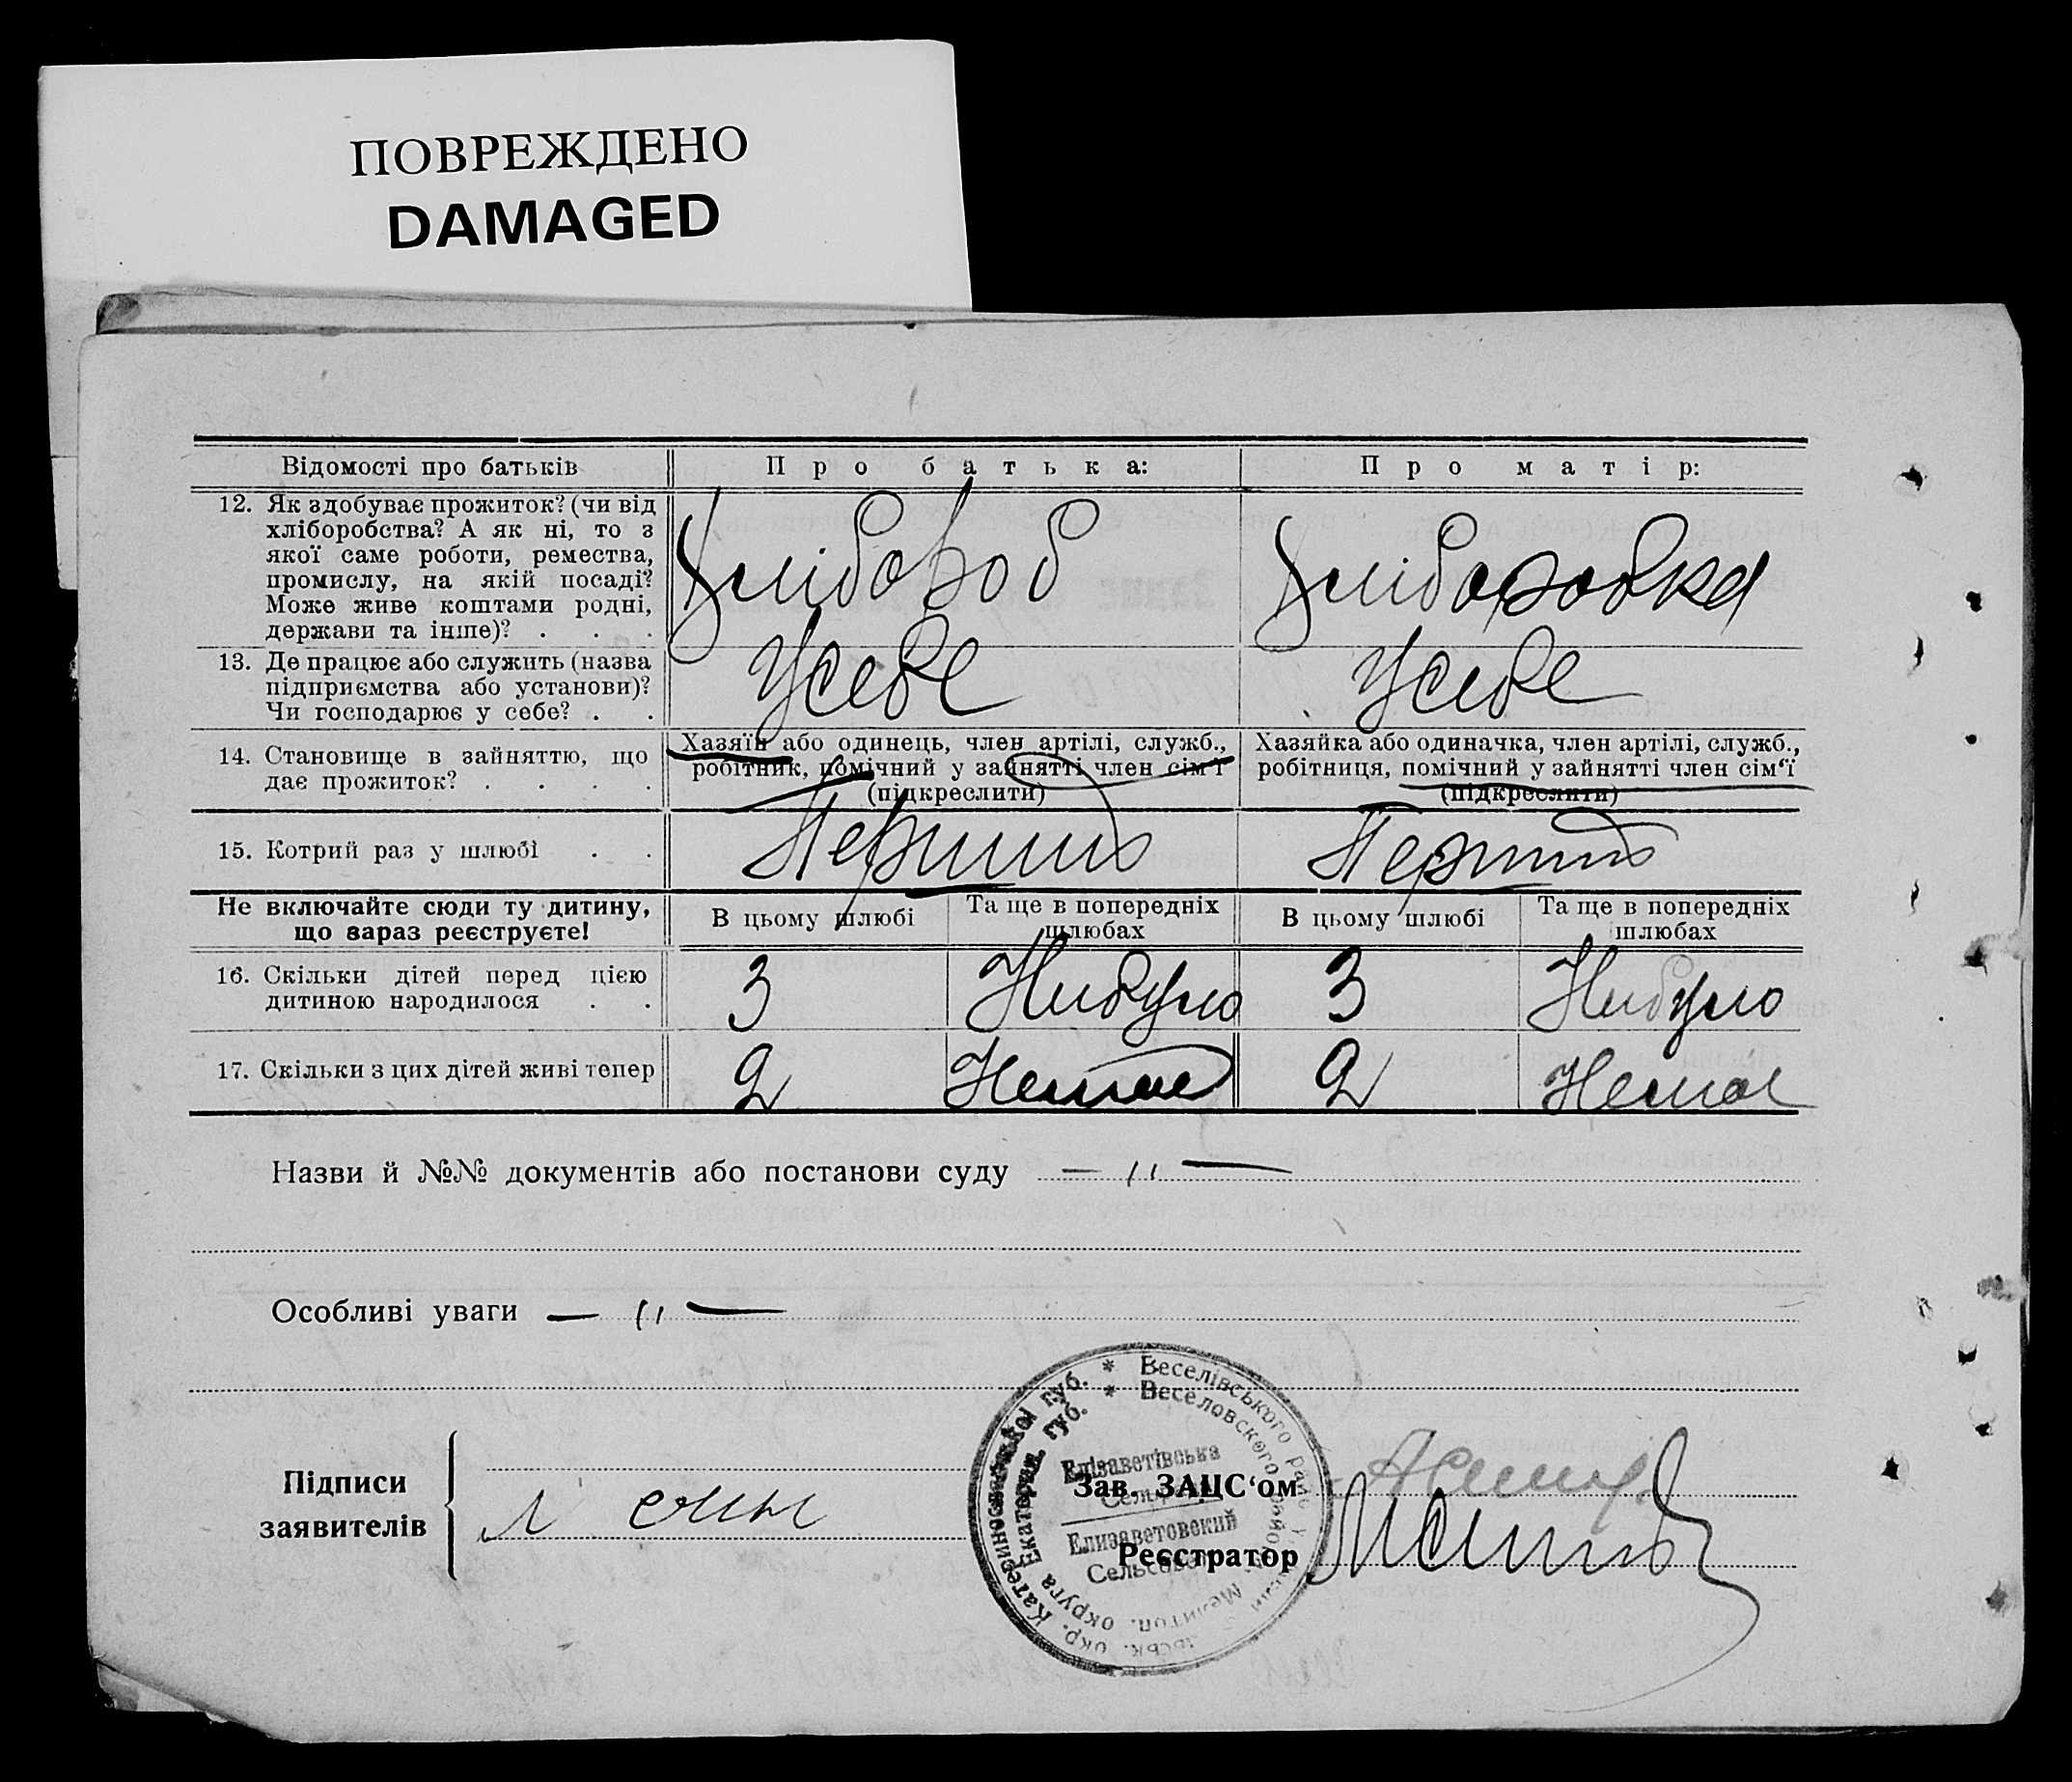 ПОВРЕЖДЕНО
DAMAGED
Відомості про батьків
Про батька:
Про матір:
12. Як здобуває прожиток? (чи від
хліборобства? А як ні, то з
якої саме роботи, ремества,
промислу, на якій посаді?
Може живе коштами родні,
держави та інше)? . . .
Хлібороб
Хліборобка
13. Де працює або служить (назва
підприємства або установи)?
Чи господарює у себе? . .
Усебе
Усебе
14. Становище в зайняттю, що
дає прожиток? . . . .
Хазяїн або одинець, член артілі, служб.,
робітник, помічний у зайнятті член сім'ї
(підкреслити)
Хазяйка або одиначка, член артілі, служб.,
робітниця, помічний у зайнятті член сім'ї
(підкреслити)
15. Котрий раз у шлюбі . .
Перший
Перший
Не включайте сюди ту дитину,
що зараз реєструєте!
В цьому шлюбі
Та ще в попередніх
шлюбах
В цьому шлюбі
Та ще в попередніх
шлюбах
16. Скільки дітей перед цією
дитиною народилося . .
3
Нибуло
3
Нибуло
17. Скільки з цих дітей живі тепер
2
Немає
2
Немає
Назви й №№ документів або постанови суду — 〃 —
Особливі уваги — 〃 —
Підписи
заявителів
Зав. ЗАЦС'ом
Реєстратор
* Веселівського
* Веселовского
Катеринославської губ.
округа Екатерин. губ.
Мелитоп.
окр.
Єлізаветівська
Елизаветовский
Сельсовет